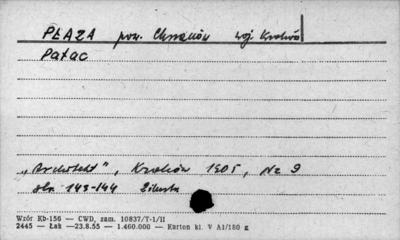 PŁAZA pow. Chrzanów woj Kraków
Pałac
„Architekt", Kraków 1905, Nr 9
str. 143-144
Wzór Kb-156 — CWD, zam. 10837/T-1/II
2445 — Łah —23.8.55 — 1.460.000 — Karton kl. V A1/180 g